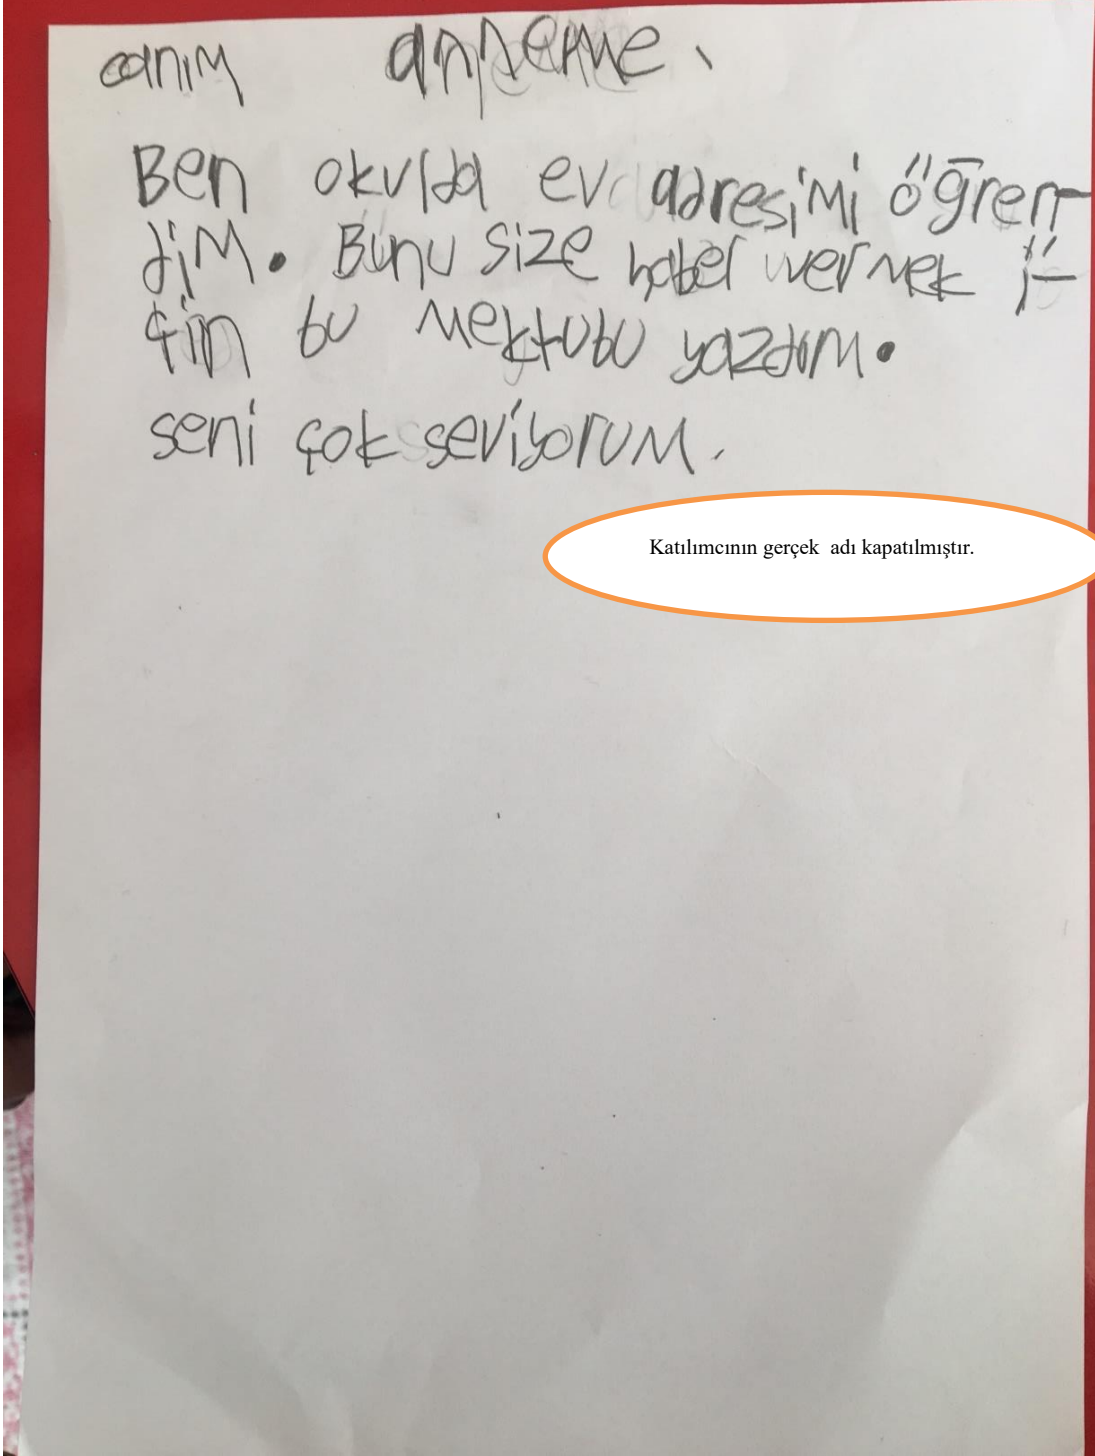 canım anneme,
Ben okulda ev adresimi öğren-
dim. Bunu size haber vermek i-
çin bu mektubu yazdım.
seni çok seviyorum.
Katılımcının gerçek adı kapatılmıştır.